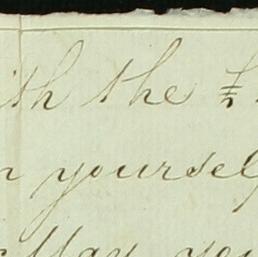 ith the
yourself
May you